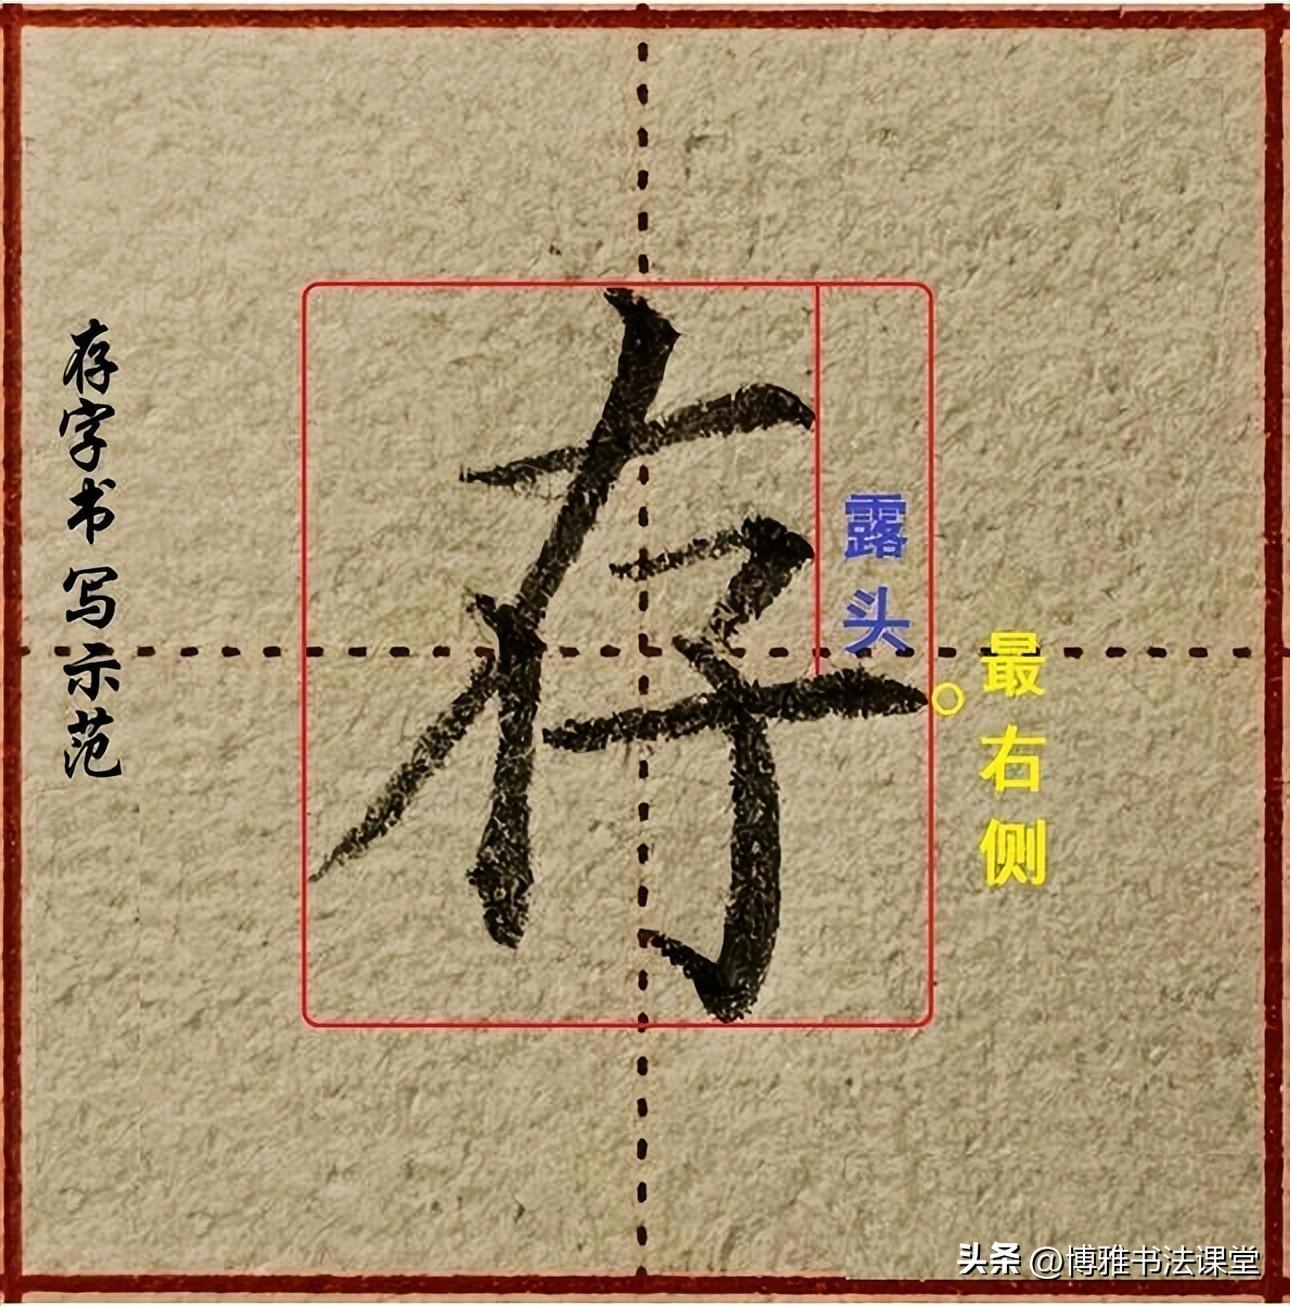 存字书写示范
存
露头
最右侧
头条 @博雅书法课堂